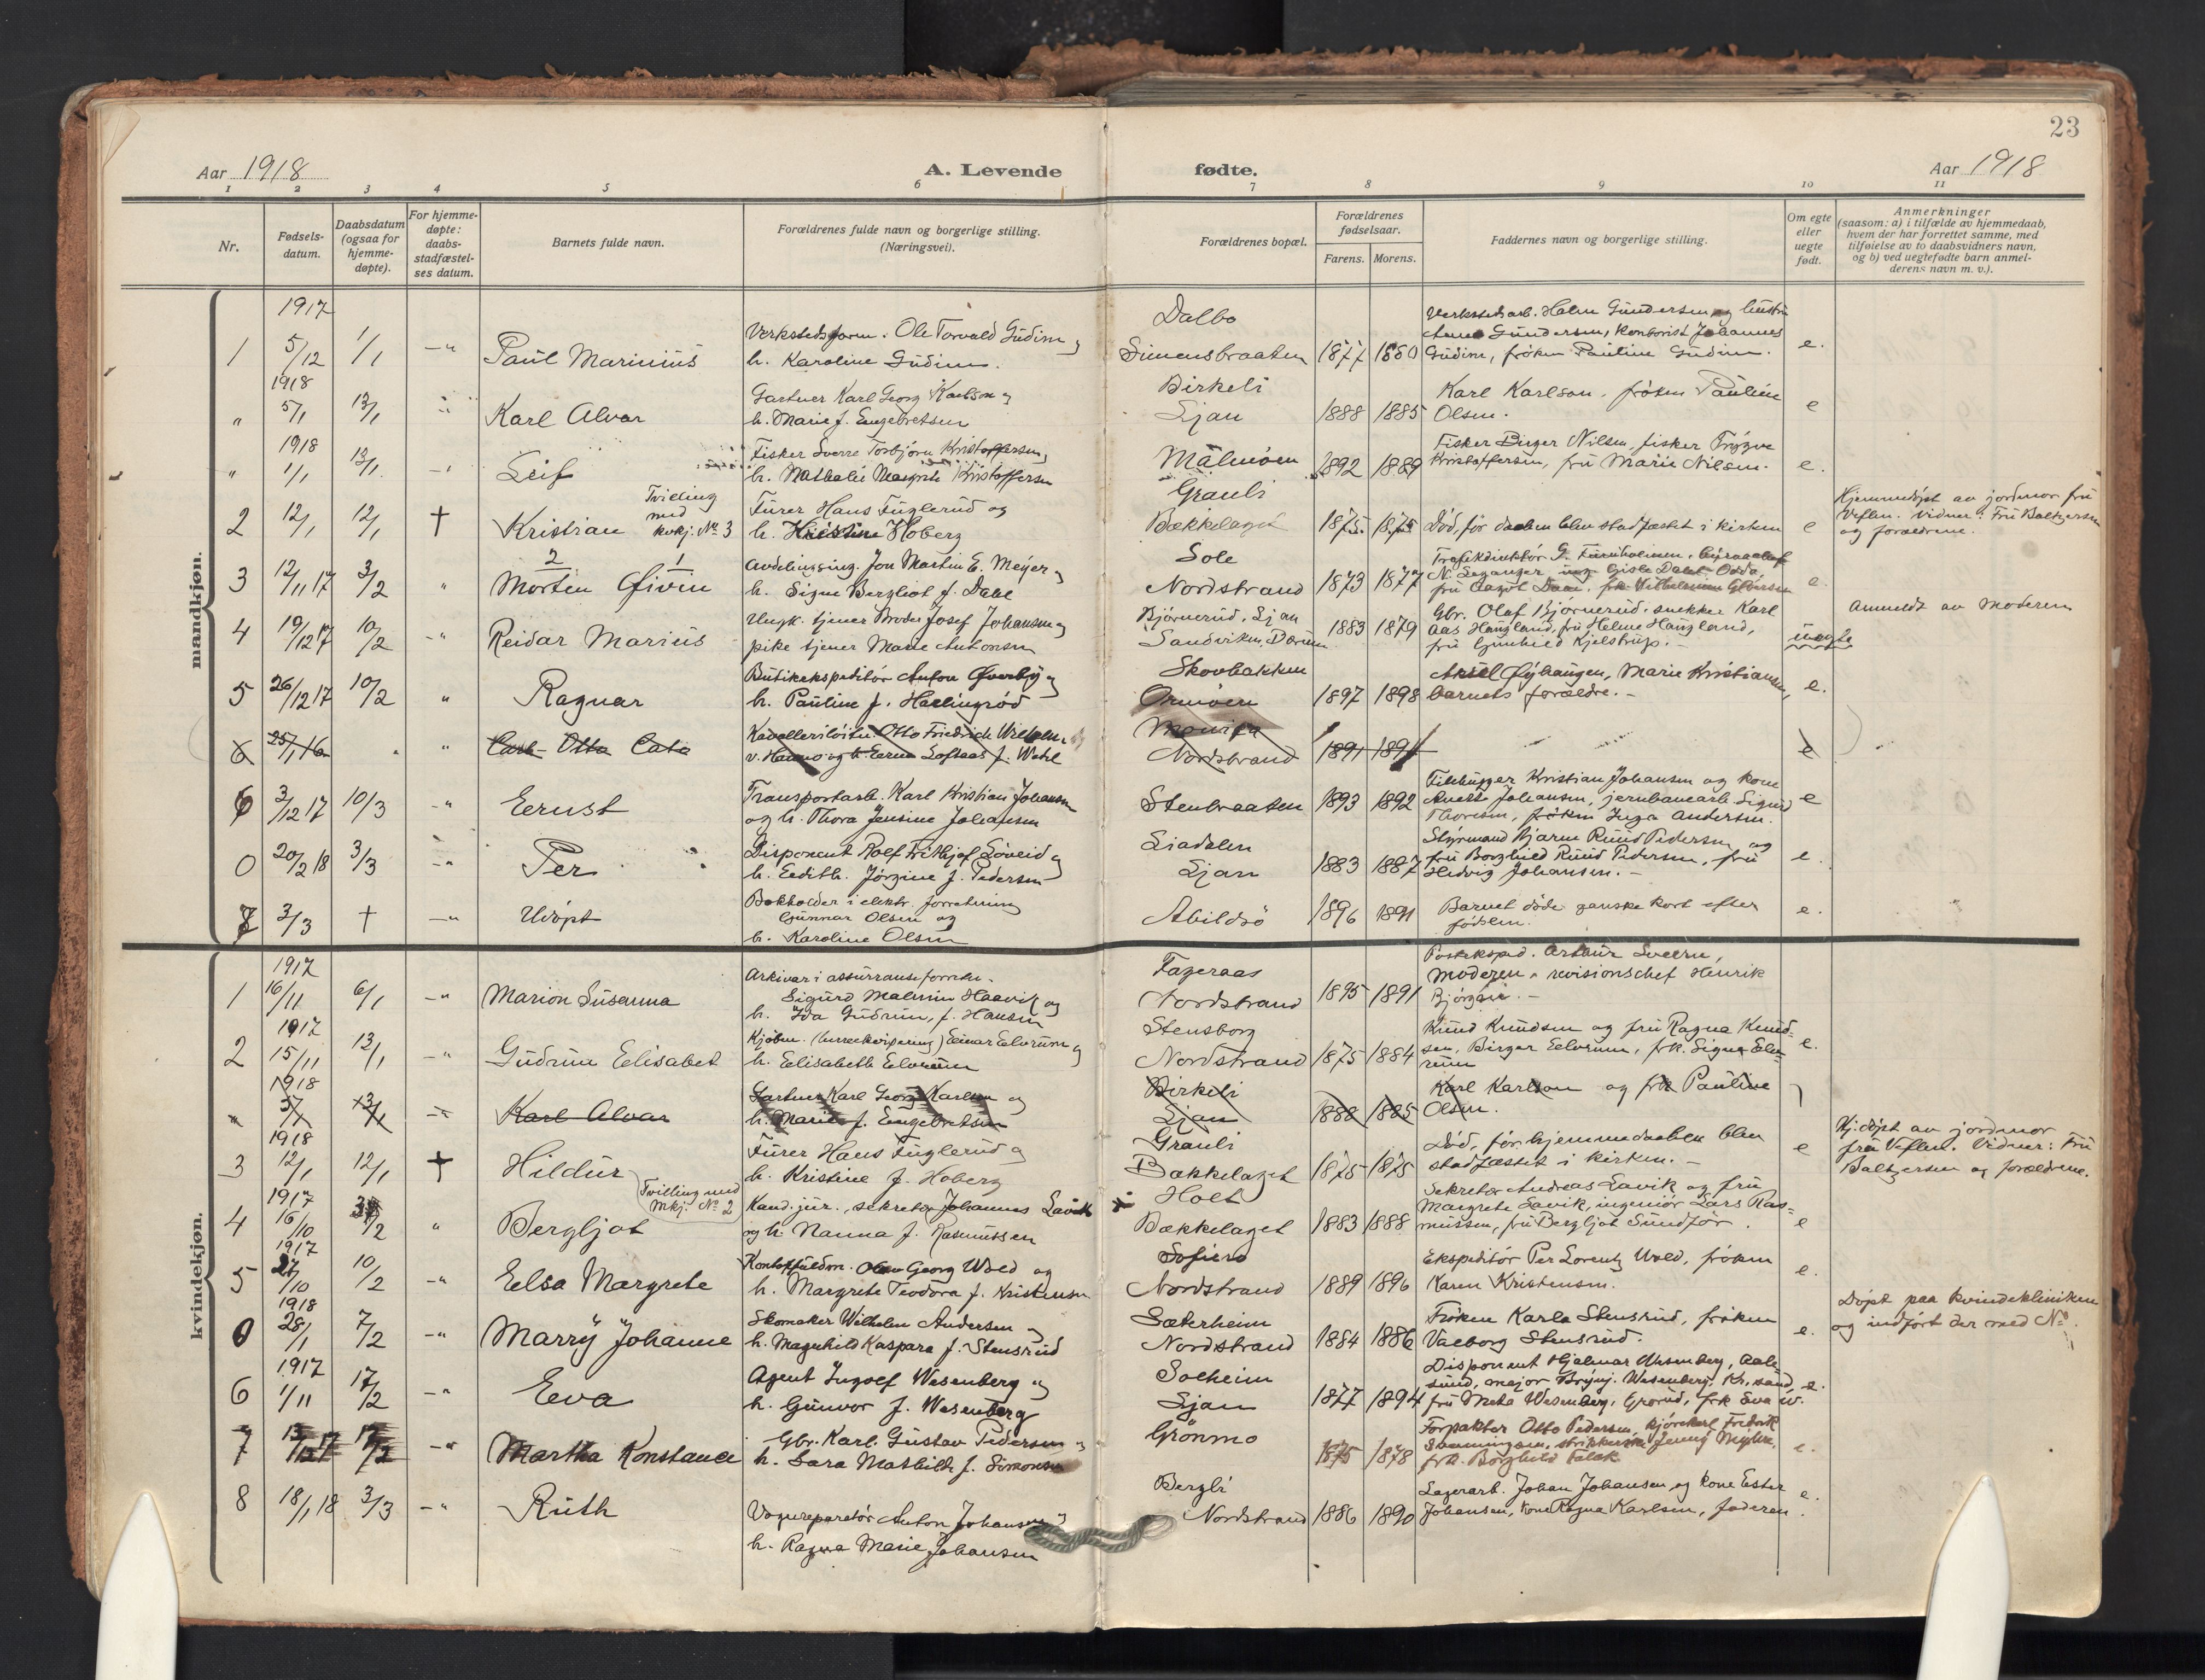 23
Aar 1918
A. Levende
fødte.
Aar 1918
1 2 3 4 5 6 7 8 9 10 11
Nr.
Fødsels-
datum.
Daabsdatum
(ogsaa for
hjemme-
døpte).
For hjemme-
døpte:
daabs-
stadfæstel-
ses datum.
Barnets fulde navn.
Forældrenes fulde navn og borgerlige stilling.
(Næringsvei).
Forældrenes bopæl.
Forældrenes
fødselsaar.
Farens. Morens.
Faddernes navn og borgerlige stilling.
Om egte
eller
uegte
født.
Anmerkninger
(saasom: a) i tilfælde av hjemmedaab,
hvem der har forrettet samme, med
tilføielse av to daabsvidners navn,
og b) ved uegtefødte barn anmel-
derens navn m. v.).
mandkjøn.
1917
1 5/12 1/1 Paul Marinius
Verkstedsform. Ole Torvald Gudim og
h. Karoline Gudim.
Dalbo
Simensbraaten 1877 1880
Verkstedsarb. Halm Gundersen og hustru
Gundersen, kontorist Johannes
Gudim, frøken Pauline Gudim. e.
1918
" 5/1 13/1 Karl Alvar
Gartner Karl Georg Karlson og
h. Marie f. Engebretsen
Birkeli
Ljan 1888 1885
Karl Karlson. frøken Pauline
Olsen. e
1918
" 1/1 13/1 Leif
Fisker Sverre Torbjørn Kristoffersen,
h. Nathalie Margrete Kristoffersen
Malmøen 1892 1889
Fisker Birger Nilsen, fisker Trygve
Kristoffersen, fru Marie Nilsen. e.
2 12/1 12/1 † Kristian
Tvilling
med
kvkj. No 3
Furer Hans Fuglerud og
h. Kristine Hoberg
Grauli
Bækkelaget 1875 1875
Død, før daaben blev stadfæstet i kirken e
Hjemmedøpt av jordmor fru
Veflen. Vidner: Fru Baltzersen
og forældrene.
3 12/11 17 3/2 "
2 1
Morten Øivin
Avdelingsing. Jon Martin E. Meyer og
h. Signe Bergliot f. Dahl
Sole
Nordstrand 1873 1877
e.
4 19/12 17 10/2 Reidar Marius
Ungk. tjener Broder Josef Johansen og
pike tjener Marie Antonsen
Bjørnerud, Ljan
Sandviken, Bærum 1883 1879
Gbr. Olaf Bjørnerud. snekker Karl
Aas Haugland, fru Helene Haugland,
fru Gunhild Kjelstrup. uegte
Anmeldt av moderen
5 26/12 17 10/2 " Ragnar
Butikekspeditør Anton Øverby og
h. Pauline f. Hallingrød
Skovbakken
Ormøen 1897 1898
Aksel Øyhaugen, Marie Kristiansen,
barnets forældre. e.
6 25/1 16 " Carl Otto Cato
Kavalleriløitn. Otto Friedrich Wilhelm
v. Hanno og h. Erna Lofsaas f. Wahl
Nordstrand 1891 1891 e
6 3/12 17 10/3 Ernst
Transportarb. Karl Kristian Johansen
og h. Thora Jensine Johansen
Stenbraaten 1893 1892
Filehugger Kristian Johansen og kone
Anette Johansen, jernbanearb. Sigurd
Thoresen, frøken Inga Andersen. e
0 20/2 18 3/3 Per
Disponent Rolf Frithjof Løveid og
h. Edith Jørgine f. Pedersen
Liadalen
Ljan 1883 1887
Styrmand Bjarne Ruud Pedersen og
fru Borghild Ruud Pedersen, fru
Hedvig Johansen. e.
7 3/3 † Udøpt
Bokholder i elektr. forretning
Gunnar Olsen og
h. Karoline Olsen
Abildsø 1896 1891
Barnet døde ganske kort efter
fødslen. e.
kvindekjøn.
1917
1 16/11 6/1 Marion Susanna
Arkivar i assuranseforretn.
Sigurd Malmin Haavik og
h. Ida Gudrun, f. Hansen
Fageraas
Nordstrand 1895 1891
Postekspd. Arthur Sveen,
moderen, revisionschef Henrik
1917
2 15/11 13/1 Gudrun Elisabet
Kjøbm. (herreekvipering) Einar Elvrum og
h. Elisabeth Elvrum
Stensborg
Nordstrand 1875 1884
Knud Knudsen og fru Ragna Knud-
sen, Birger Elvrum, frk. Signe Elv-
rum e.
1918
" 5/1 13/1 Karl Alvar
Gartner Karl Georg Karlsen og
h. Marie f. Engebretsen
Birkeli
Ljan 1888 1885
Karl Karlson og frk Pauline
Olsen.
1918
3 12/1 12/1 † Hildur
Tvilling med
mkj. No 2
Furer Hans Fuglerud og
h. Kristine f. Hoberg
Grauli
Bækkelaget 1875 1875
Død, før hjemmedaaben blev
stadfæstet i kirken. e
Hj. døpt av jordmor
fru Veflen. Vidner: Fru
Baltzersen og forældrene.
1917
4 16/10 3/2 " Bergljot
Kand. jur., sekretær Johannes Lavik
og h. Nanna f. Rasmussen
Holt
Bækkelaget 1883 1888
Sekretær Andreas Lavik og fru
Margrete Lavik, ingeniør Lars Ras-
mussen, fru Bergljot Sundfør. e
1917
5 27/10 10/2 Elsa Margrete
Kontorfuldm. Olav Georg Wold og
h. Margrete Teodora f. Kristensen
Sofiero
Nordstrand 1889 1896
Ekspeditør Per Lorentz Wold, frøken
Karen Kristensen. e.
1918
0 28/1 7/2 Marry Johanne
Skomaker Wilhelm Andersen og
h. Magnhild Kaspara f. Stensrud
Sæterheim
Nordstrand 1884 1886
Frøken Karla Stensrud, frøken
Valborg Stensrud. e.
Døpt paa kvindekliniken
og indført der med No.
1917
6 1/11 17/2 Eva
Agent Ingolf Wesenberg og
h. Gunvor f. Wesenberg
Solheim
Ljan 1877 1894
Disponent Hjalmar Wesenberg, Aale-
sund, major Brynj. Wesenberg, Kr. sand,
fru Meta Wesenberg, Grorud, frk Eva W. e.
7 13/12 17 17/2 Martha Konstance
Gbr. Karl Gustav Pedersen og
h. Sara Mathilde f. Simonsen
Grønmo
1875 1878
Forpakter Otto Pedersen, kjørekarl Fredrik
frk. Borghild Falck e.
8 18/1 18 3/3 Ruth
Vognreparatør Anton Johansen og
h. Ragna Marie Johansen
Bergli
Nordstrand 1886 1890
Lagerarb. Johan Johansen og kone Ester
Johansen, kone Ragna Karlsen, faderen. e.